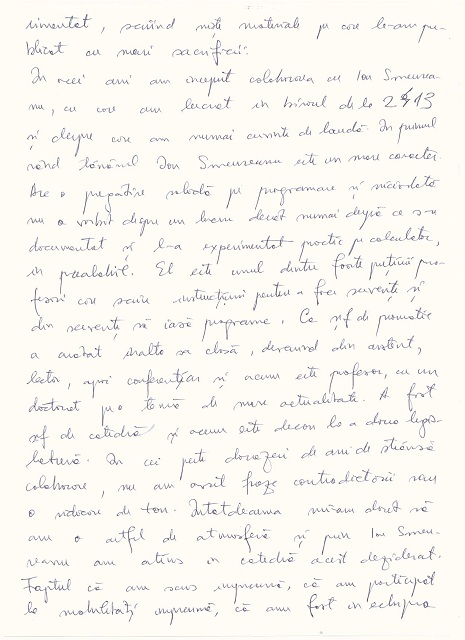 rimentat, scriind niște materiale pe care le-am pu-
blicat cu mari sacrificii.
În acei ani am început colaborarea cu Ion Smeurea-
nu, cu care am lucrat în biroul de la 2413
și despre care am numai cuvinte de laudă. În primul
rând tânărul Ion Smeureanu este un mare caracter.
Are o pregătire solidă pe programare și niciodată
nu a vorbit despre un lucru decât numai după ce s-a
documentat și l-a experimentat practic pe calculator,
în prealabil. El este unul dintre foarte puținii pro-
fesori care scriu instrucțiuni pentru a face secvențe și
din secvențe să iasă programe. Ca șef de promoție
a arătat înalta sa clasă, devenind din asistent,
lector, apoi conferențiar și acum este profesor, cu un
doctorat pe o temă de mare actualitate. A fost
șef de catedră și acum este decan la a doua legis-
latură. În cei peste douăzeci de ani de strânsă
colaborare, nu am avut fraze contradictorii sau
o ridicare de ton. Întotdeauna mi-am dorit să
am o astfel de atmosferă și prin Ion Smeu-
reanu am atins în catedră acest deziderat.
Faptul că am scris împreună, că am participat
la mobilități împreună, că am fost în echipa